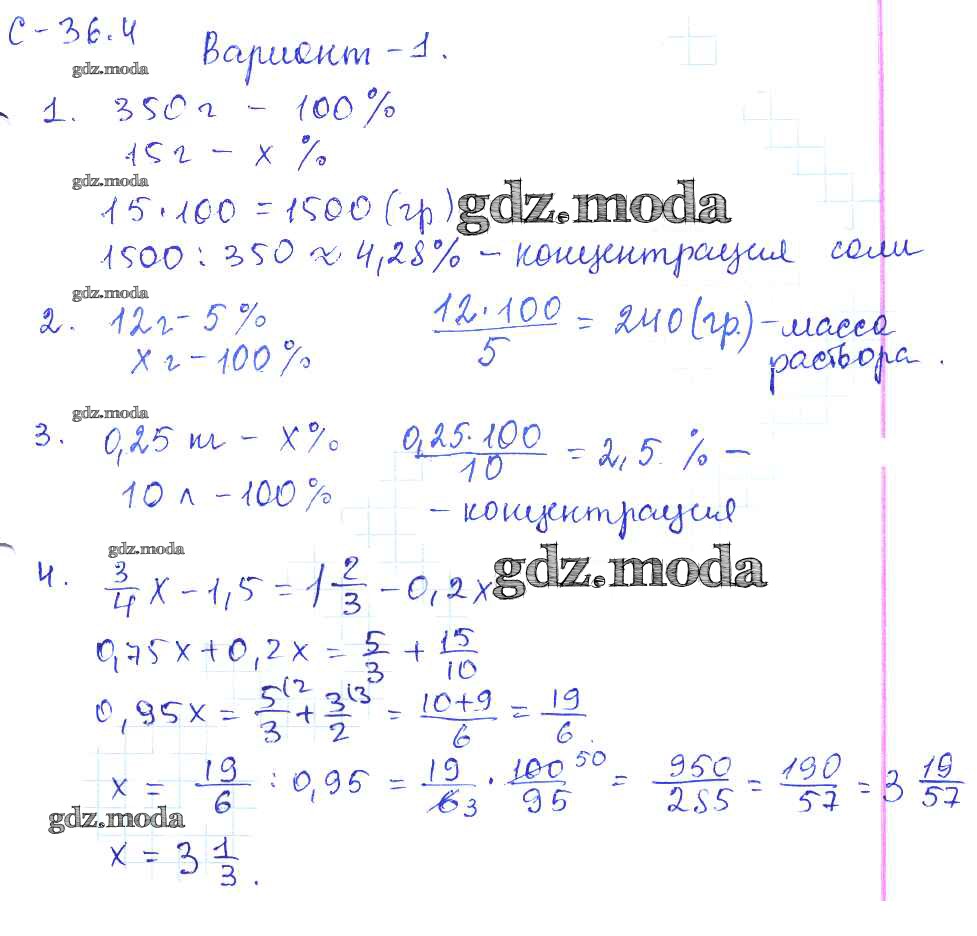 С-36.4
Вариант-1.
gdz.moda
1. 350 г - 100%
15 г - x %
gdz.moda
15·100 = 1500 (гр) gdz.moda
1500 : 350 ≈ 4,28% - концентрация соли
gdz.moda
2. 12 г - 5% 12·100/5 = 240 (гр.) - масса
x г - 100% раствора.
gdz.moda
3. 0,25 кг - x% 0,25·100/10 = 2,5 % -
10 л - 100% - концентрация
gdz.moda
4. 3/4 x - 1,5 = 1 2/3 - 0,2x gdz.moda
0,75x + 0,2x = 5/3 + 15/10
0,95x = 5/3 (2 + 3/2 (3 = 10+9/6 = 19/6.
x = 19/6 : 0,95 = 19/6 3 · 100 50/95 = 950/285 = 190/57 = 3 19/57
gdz.moda
x = 3 1/3.